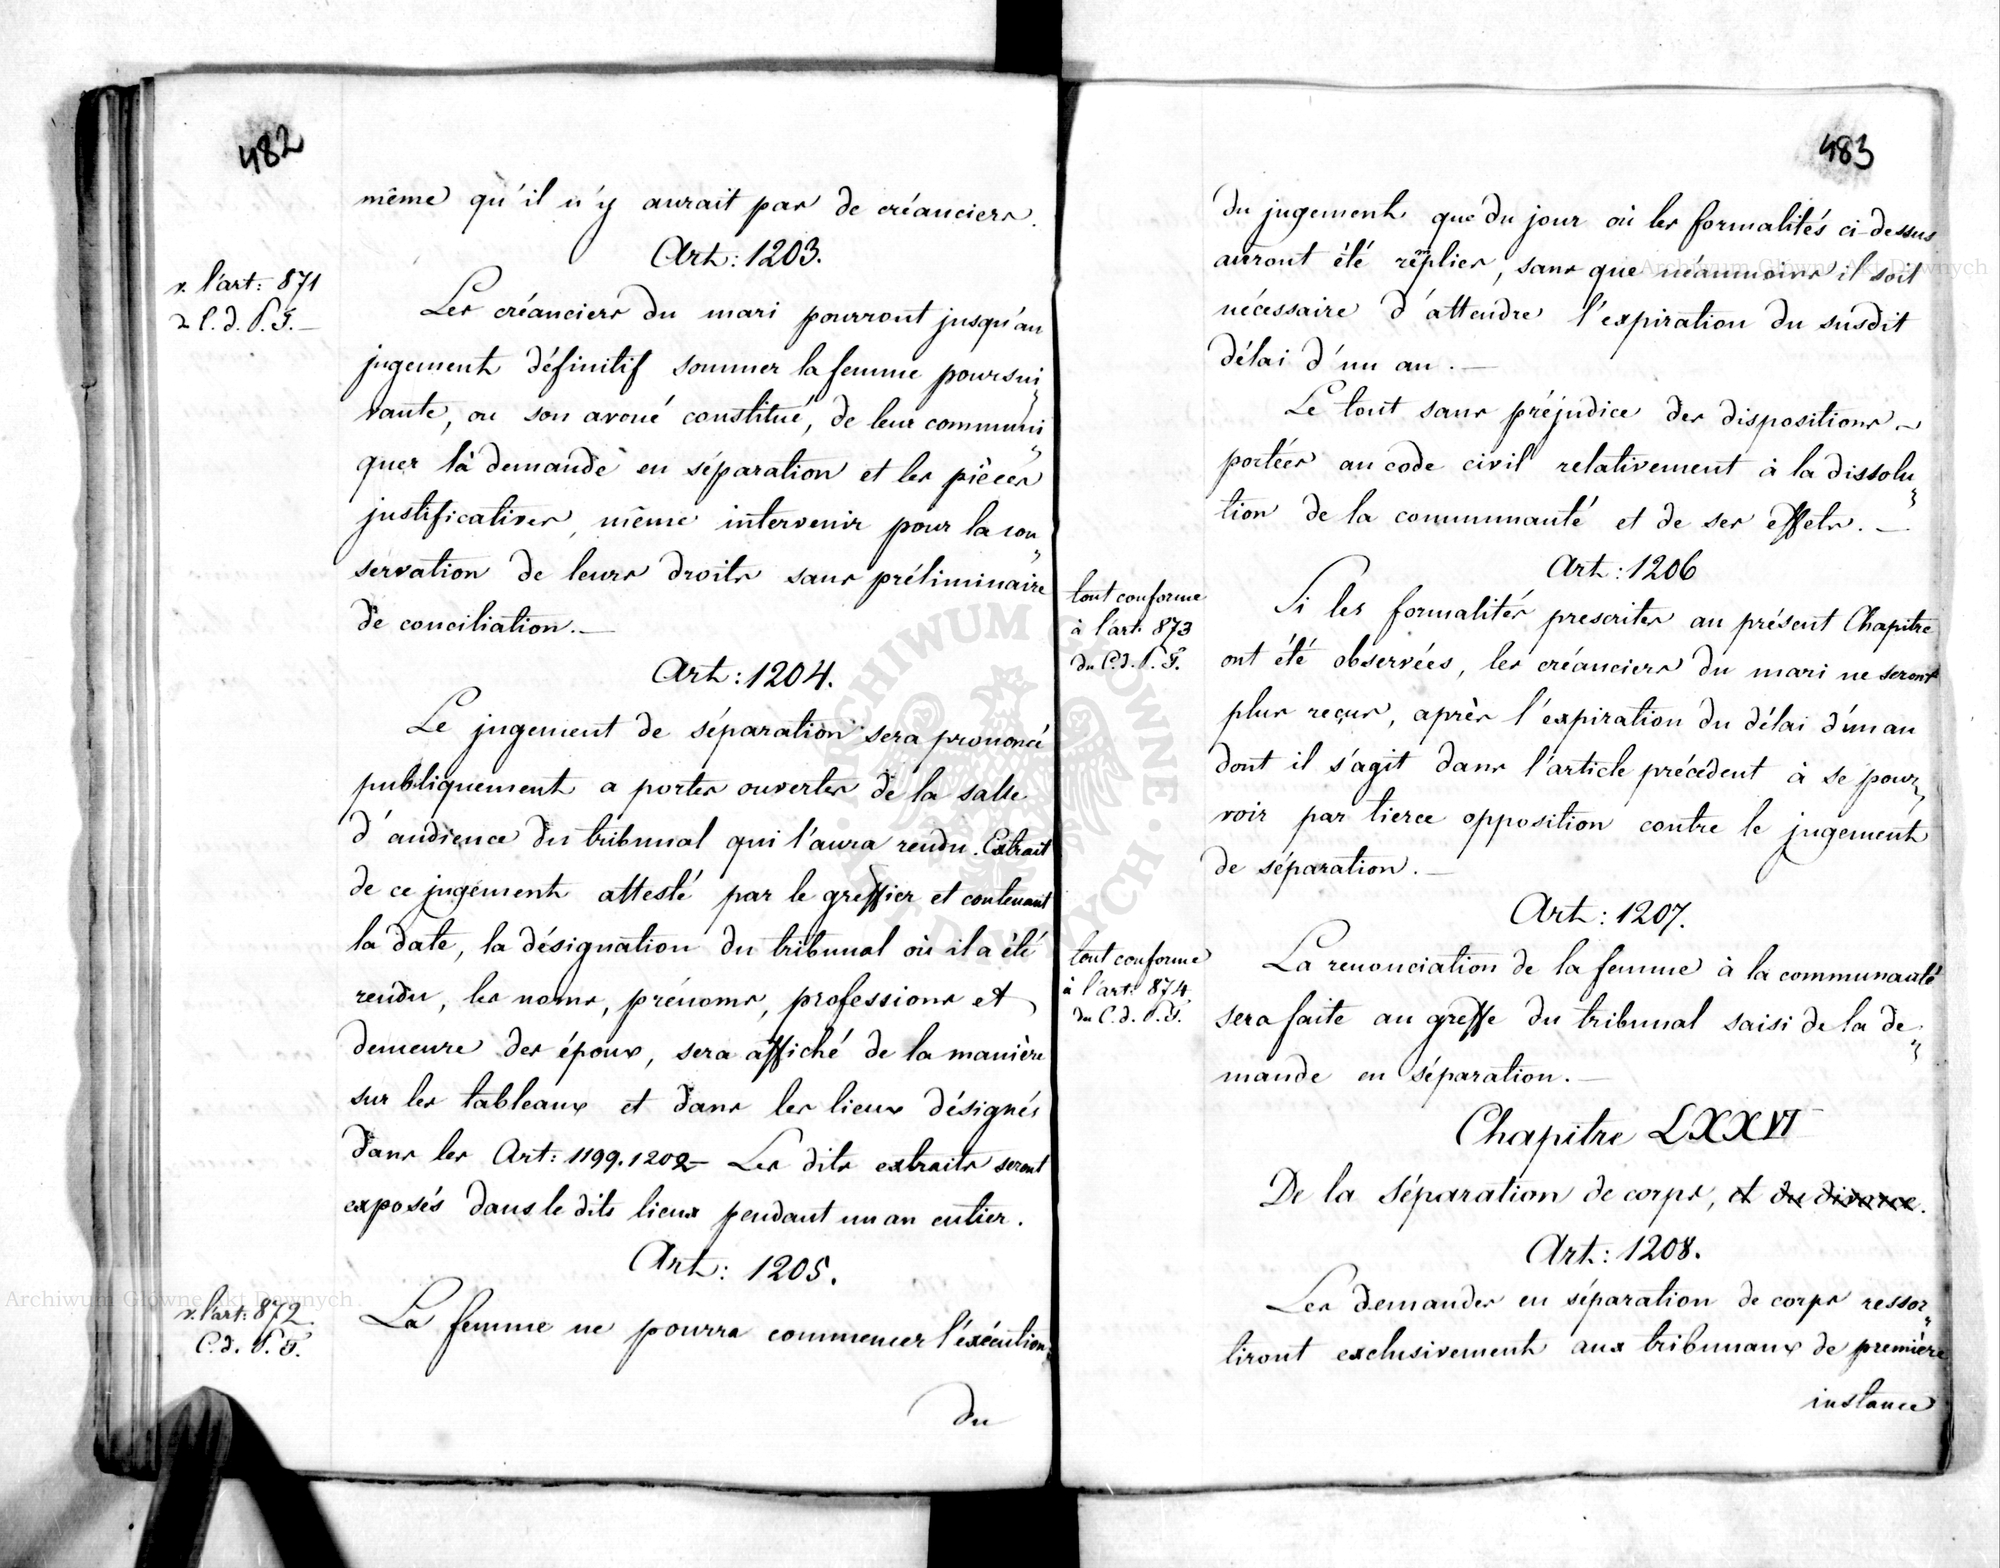 482
même qu'il n'y aurait pas de créanciers.
Art: 1203.
v. l'art: 871
Les créanciers du mari pourront jusqu'au
jugement définitif sommer la femme poursui„
vante, ou son avoué constitué, de leur communi„
quer la demande en séparation et les pièces
justificatives, même intervenir pour la con„
servation de leurs droits sans préliminaire
de conciliation.—
Art: 1204.
Le jugement de séparation sera prononcé
publiquement a portes ouvertes de la salle
d'audience du tribunal qui l'aura rendu. Extrait
de ce jugement attesté par le greffier et contenant
la date, la désignation du tribunal où il a été
rendu, les noms, prénoms, professions et
demeure des époux, sera affiché de la manière
sur les tableaux et dans les lieux désignés
dans les Art: 1199.1202– Les dits extraits seront
exposés dans le dits lieux pendant un an entier.
Art: 1205.
v. l'art: 872
C. d. P. F.
La femme ne pourra commencer l'exécution
du
483
du jugement que du jour où les formalités ci-dessus
auront été remplies, sans que néanmoins il soit
nécessaire d'attendre l'expiration du susdit
délai d'un an.—
Le tout sans préjudice des dispositions
portées au code civil relativement à la dissolu„
tion de la communauté et de ses effets.—
Art: 1206
tout conforme
à l'art. 873
du C. d. P. F.
Si les formalités prescrites au présent Chapitre
ont été observées, les créanciers du mari ne seront
plus reçus, après l'expiration du délai d'un an
dont il s'agit dans l'article précédent à se pour„
voir par tierce opposition contre le jugement
de séparation.—
Art: 1207.
tout conforme
à l'art: 874
du C. d. P. F.
La renonciation de la femme à la communauté
sera faite au greffe du tribunal saisi de la de„
mande en séparation.—
Chapitre LXXVI
De la séparation de corps, et du divorce.
Art: 1208.
Les demandes en séparation de corps ressor„
tiront exclusivement aux tribunaux de première
instance
Archiwum Główne Akt Dawnych
Archiwum Główne Akt Dawnych
ARCHIWUM GŁÓWNE AKT DAWNYCH